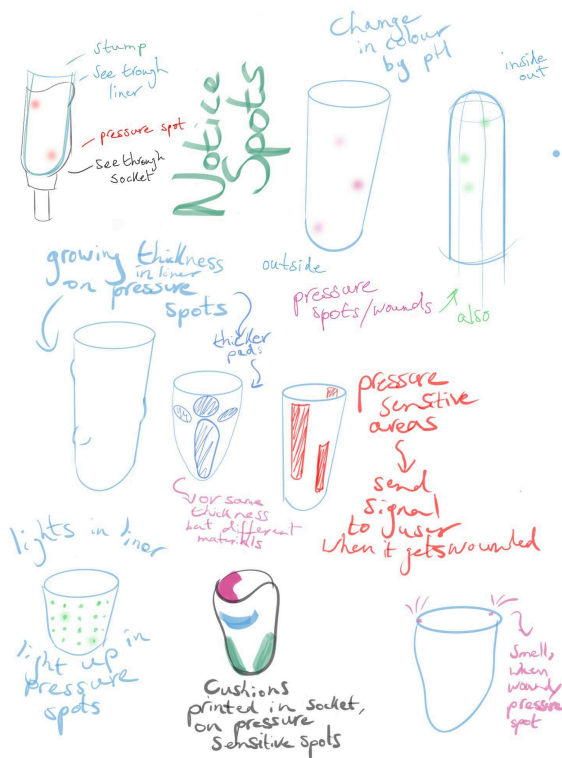 stump
see trough
liner
pressure spot
see through
socket
Notice
Spots
change
in colour
by pH
inside
out
outside
pressure
spots/wounds
also
growing thickness
in liner
on pressure
spots
thicker
pads
or same
thickness
but different
materials
pressure
sensitive
areas
send
signal
to user
when it gets wounded
lights in liner
light up in
pressure
spots
Cushions
printed in socket,
on pressure
sensitive spots
smell,
when
wound/
pressure
spot